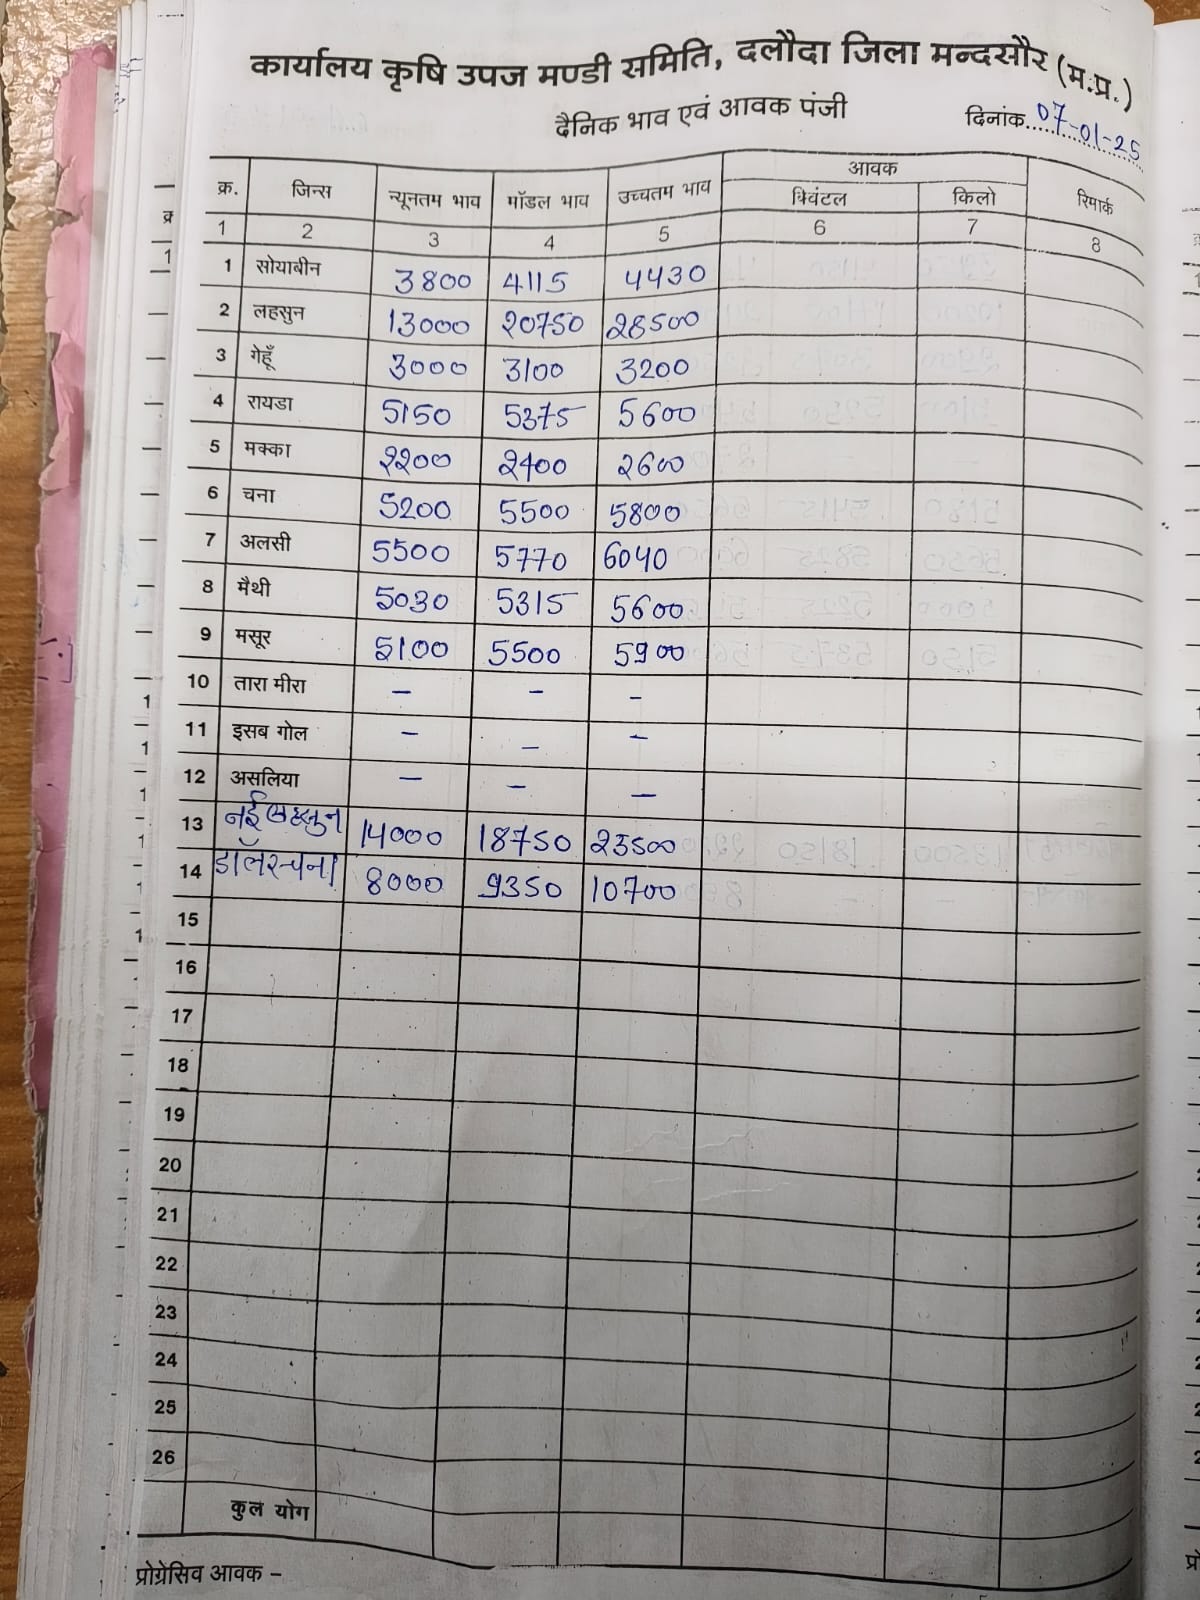 कार्यालय कृषि उपज मण्डी समिति, दलौदा जिला मन्दसौर (म.प्र.)
दैनिक भाव एवं आवक पंजी
दिनांक 07-01-25
क्र. जिन्स न्यूनतम भाव मॉडल भाव उच्चतम भाव आवक रिमार्क
क्विंटल किलो
1 2 3 4 5 6 7 8
1 सोयाबीन 3800 4115 4430
2 लहसुन 13000 20750 28500
3 गेहूँ 3000 3100 3200
4 रायडा 5150 5375 5600
5 मक्का 2200 2400 2600
6 चना 5200 5500 5800
7 अलसी 5500 5770 6040
8 मैथी 5030 5315 5600
9 मसूर 5100 5500 5900
10 तारा मीरा – – –
11 इसब गोल – – –
12 असलिया – – –
13 नई लहसुन 14000 18750 23500
14 डॉलर चना 8000 9350 10700
15
16
17
18
19
20
21
22
23
24
25
26
कुल योग
प्रोग्रेसिव आवक –